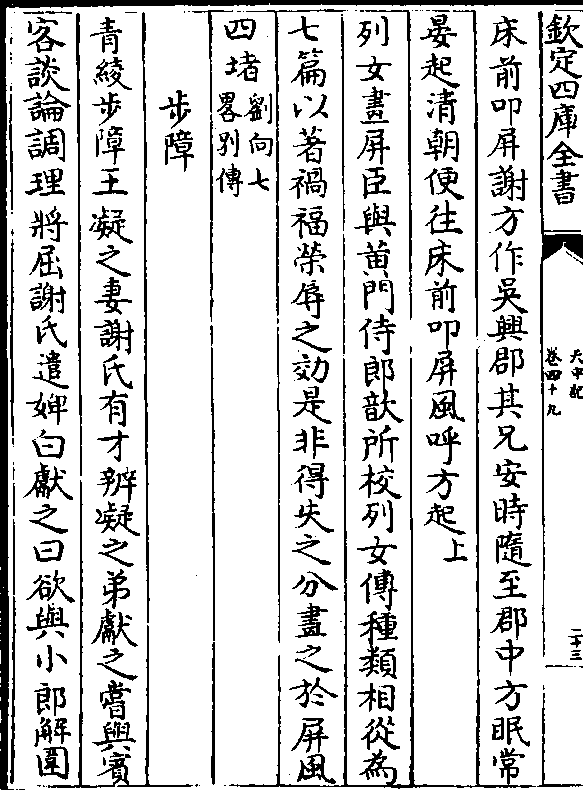 欽定四庫全書
天中記
卷四十九
二十三
床前叩屏謝方作吳興郡其兄安時隨至郡中方眠常
晏起清朝便往床前叩屏風呼方起上
列女畫屏臣與黄門侍郎歆所校列女傳種類相從為
七篇以著禍福榮辱之効是非得失之分畫之於屏風
四堵劉向七
畧别傳
步障
青綾步障王凝之妻謝氏有才辨凝之弟獻之嘗與賓
客談論調理將屈謝氏遣婢白獻之曰欲與小郎解圍